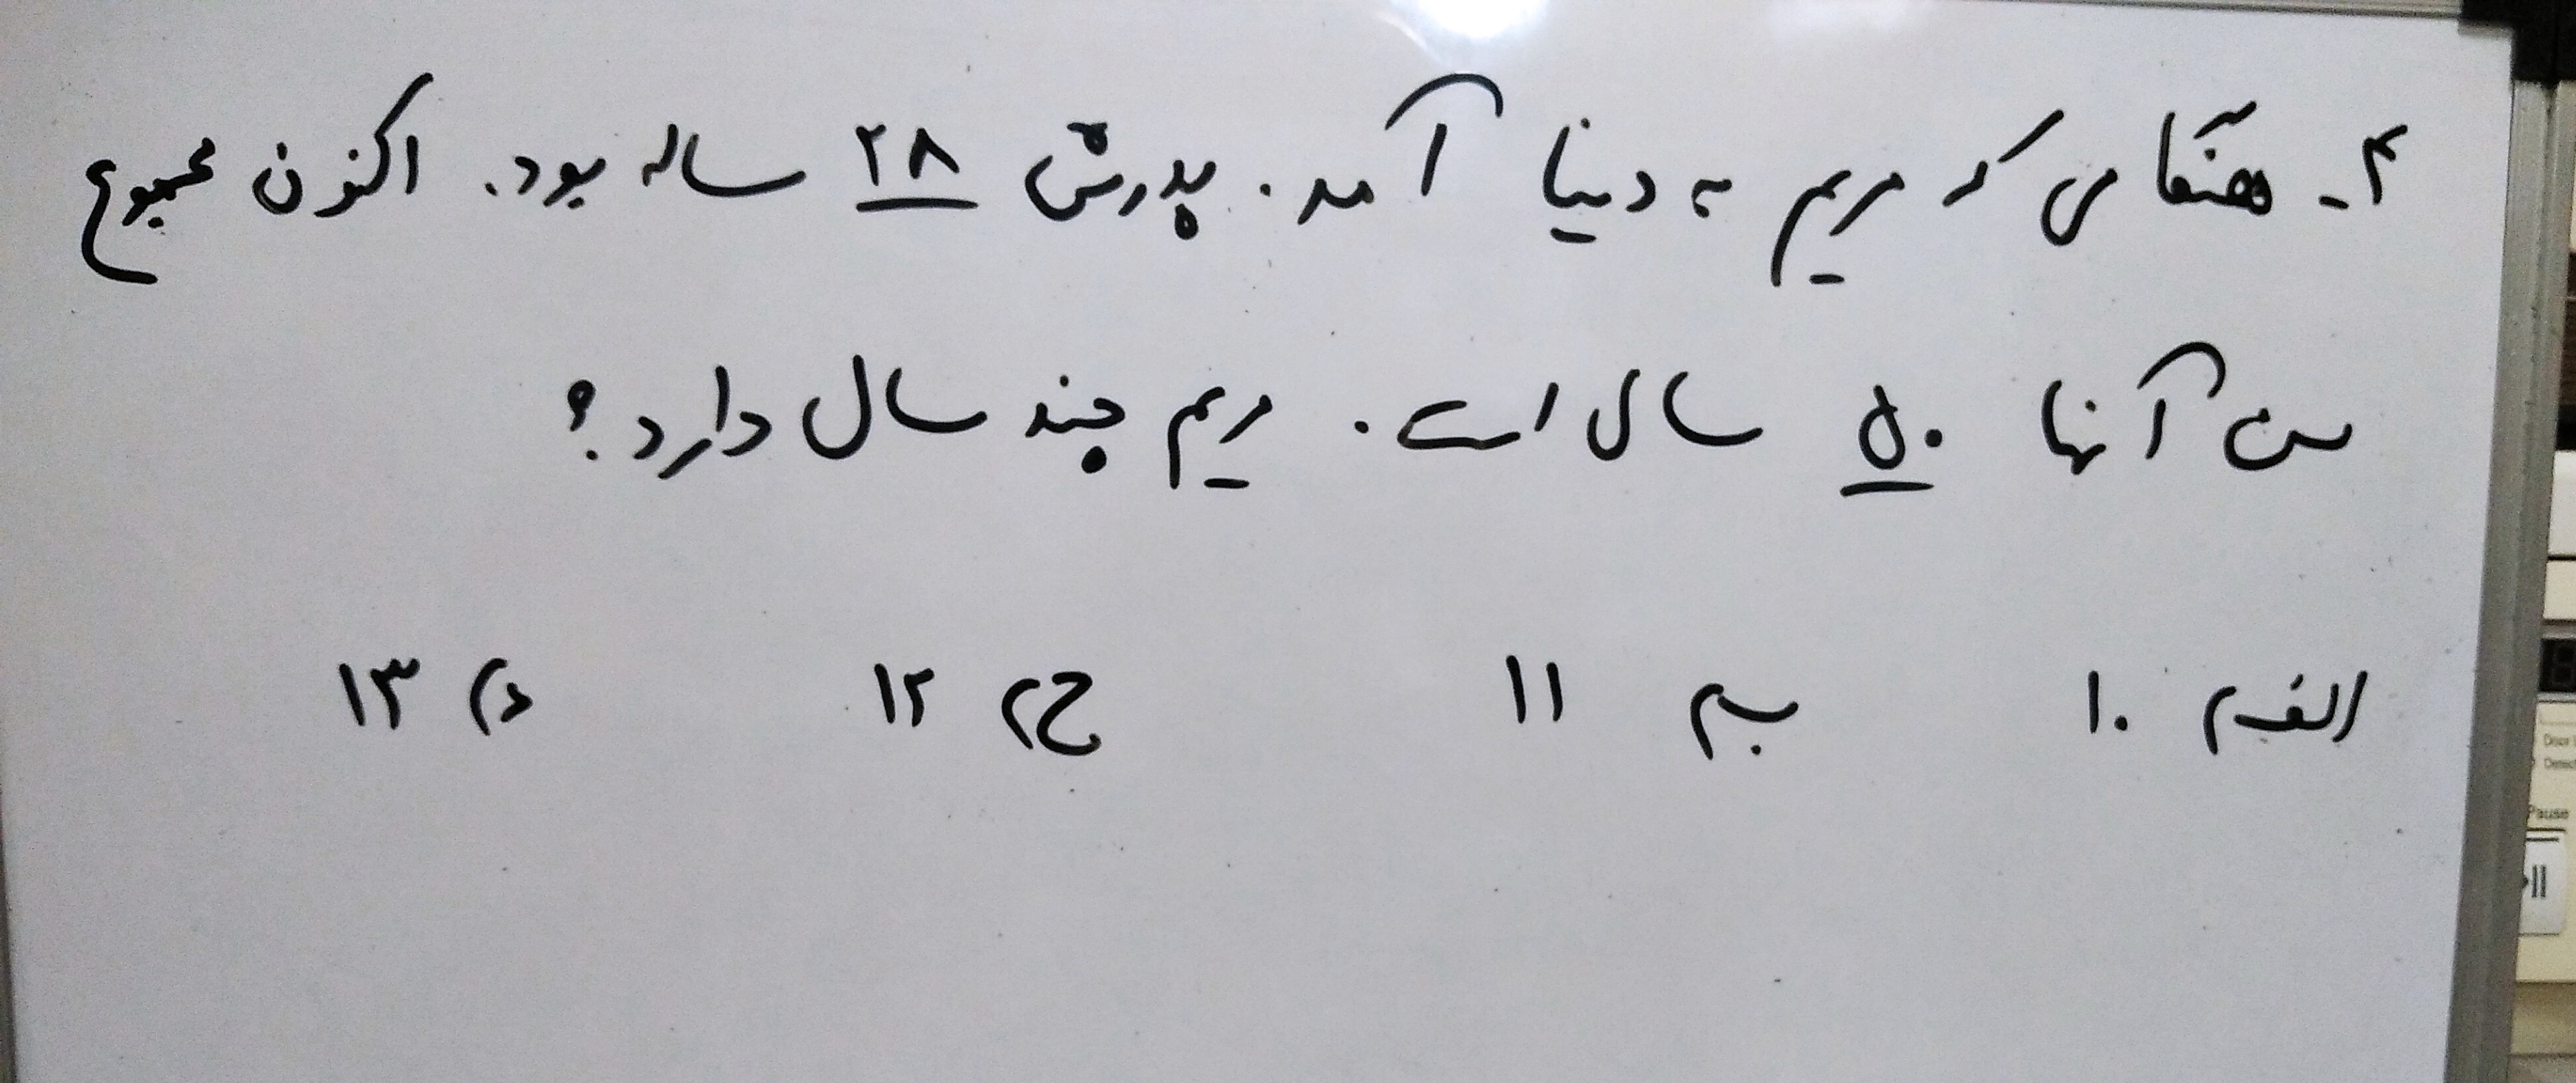 ۴- هنگامی که مریم به دنیا آمد. پدرش ۲۸ ساله بود. اکنون مجموع
سن آنها ۵۰ سال است. مریم چند سال دارد؟
الف) ۱۰ ب) ۱۱ ج) ۱۲ د) ۱۳
Pause